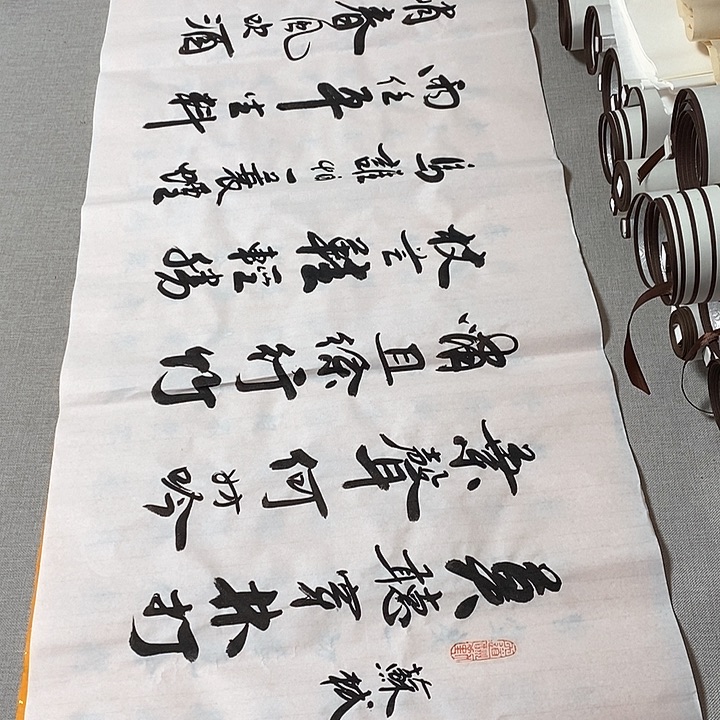 蘇軾
莫聽穿林打
葉聲何妨吟
嘯且徐行竹
杖芒鞋輕勝
馬誰怕一蓑煙
雨任平生料
峭春風吹酒